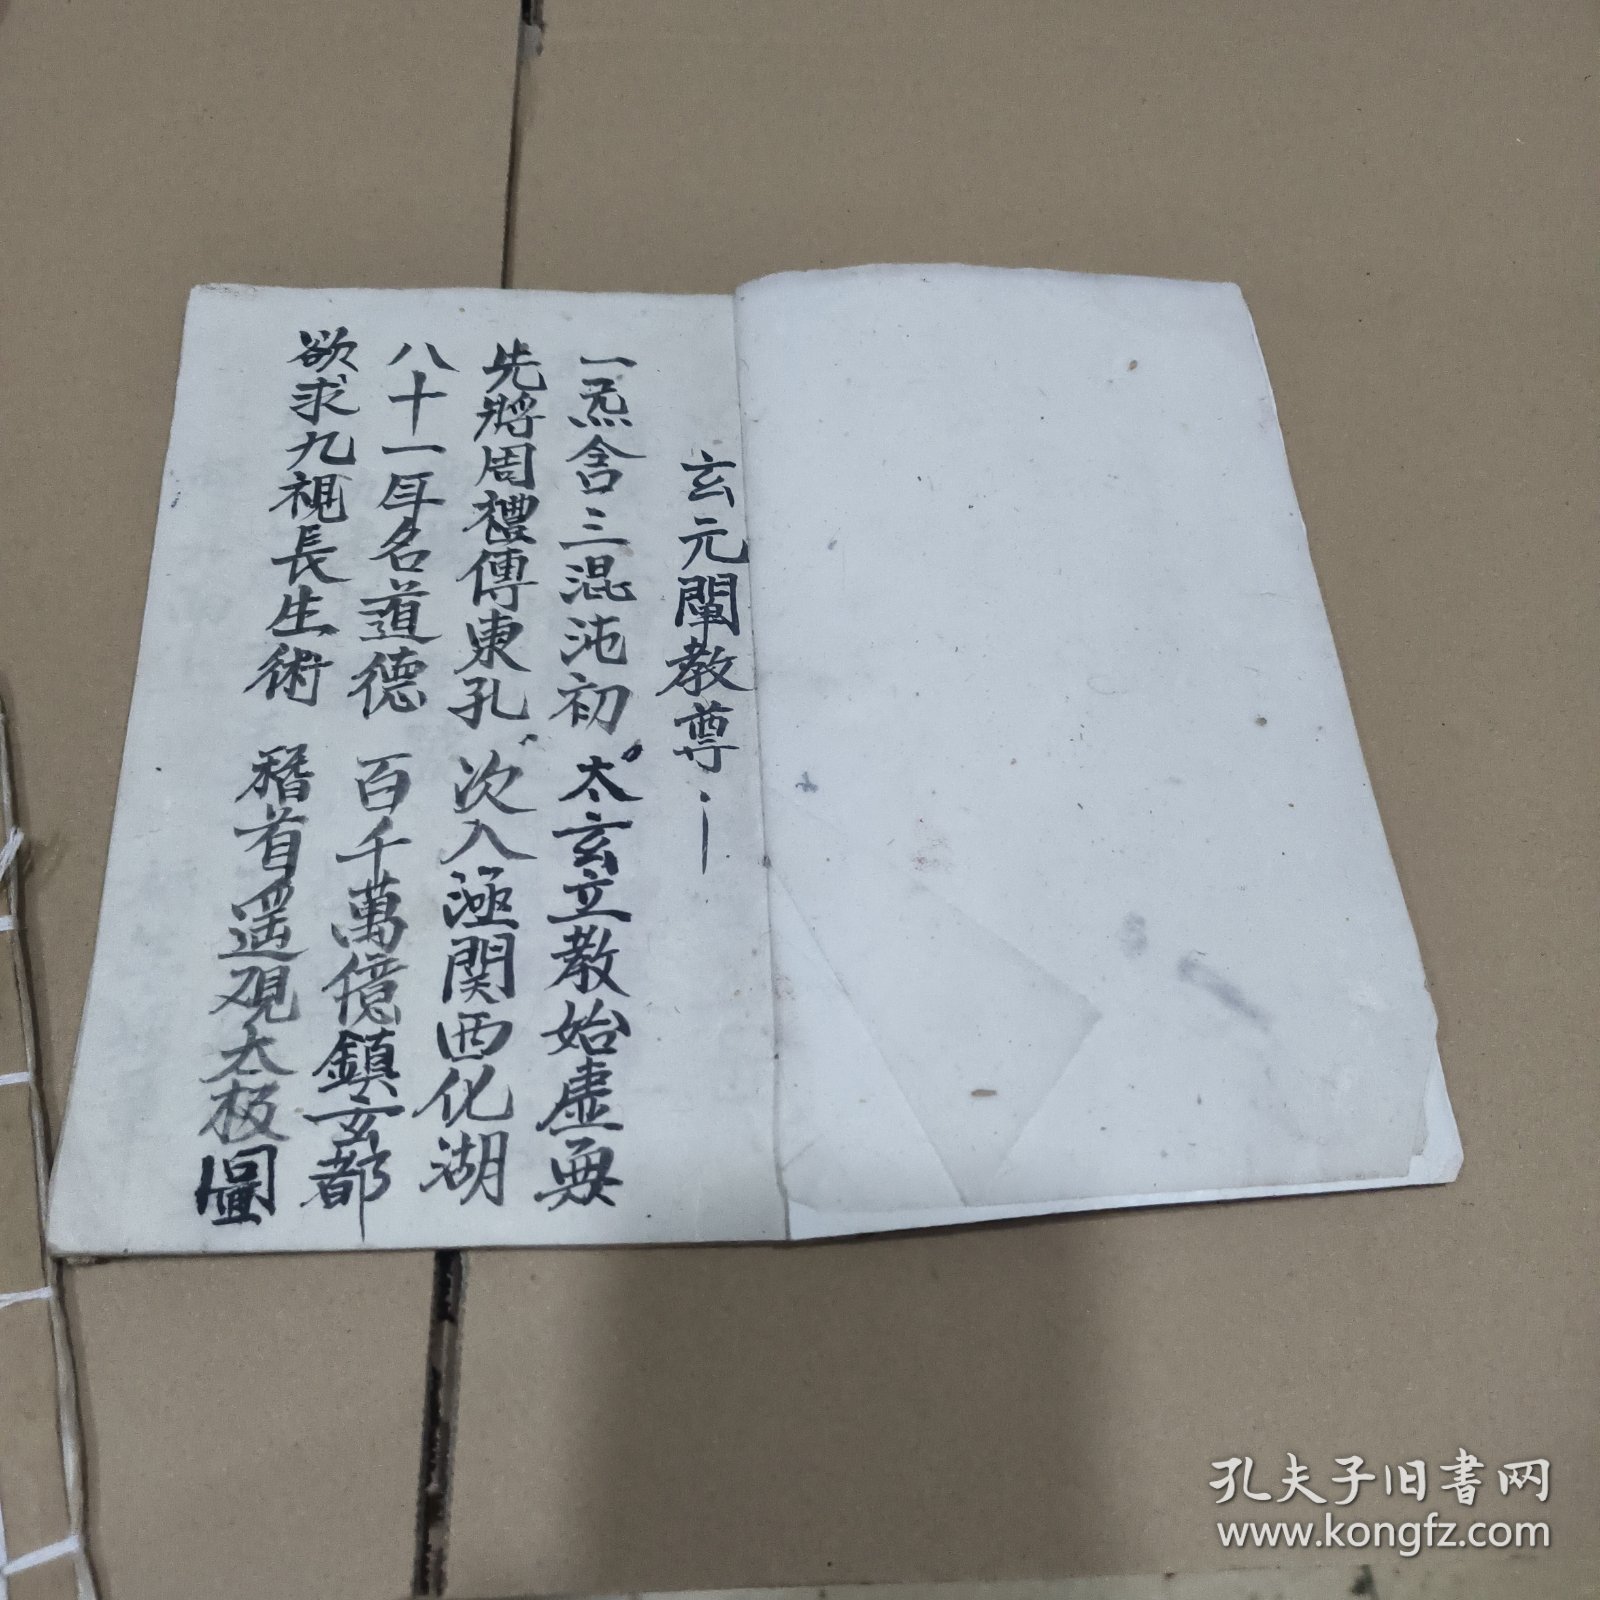 玄元闡教尊
一炁含三混沌初 太玄立教始虛無
先將周禮傳東孔 次入凾関西化湖
八十一年名道德 百千萬億鎮玄都
欲求九視長生術 稽首遥观太极圖
孔夫子旧书网
www.kongfz.com